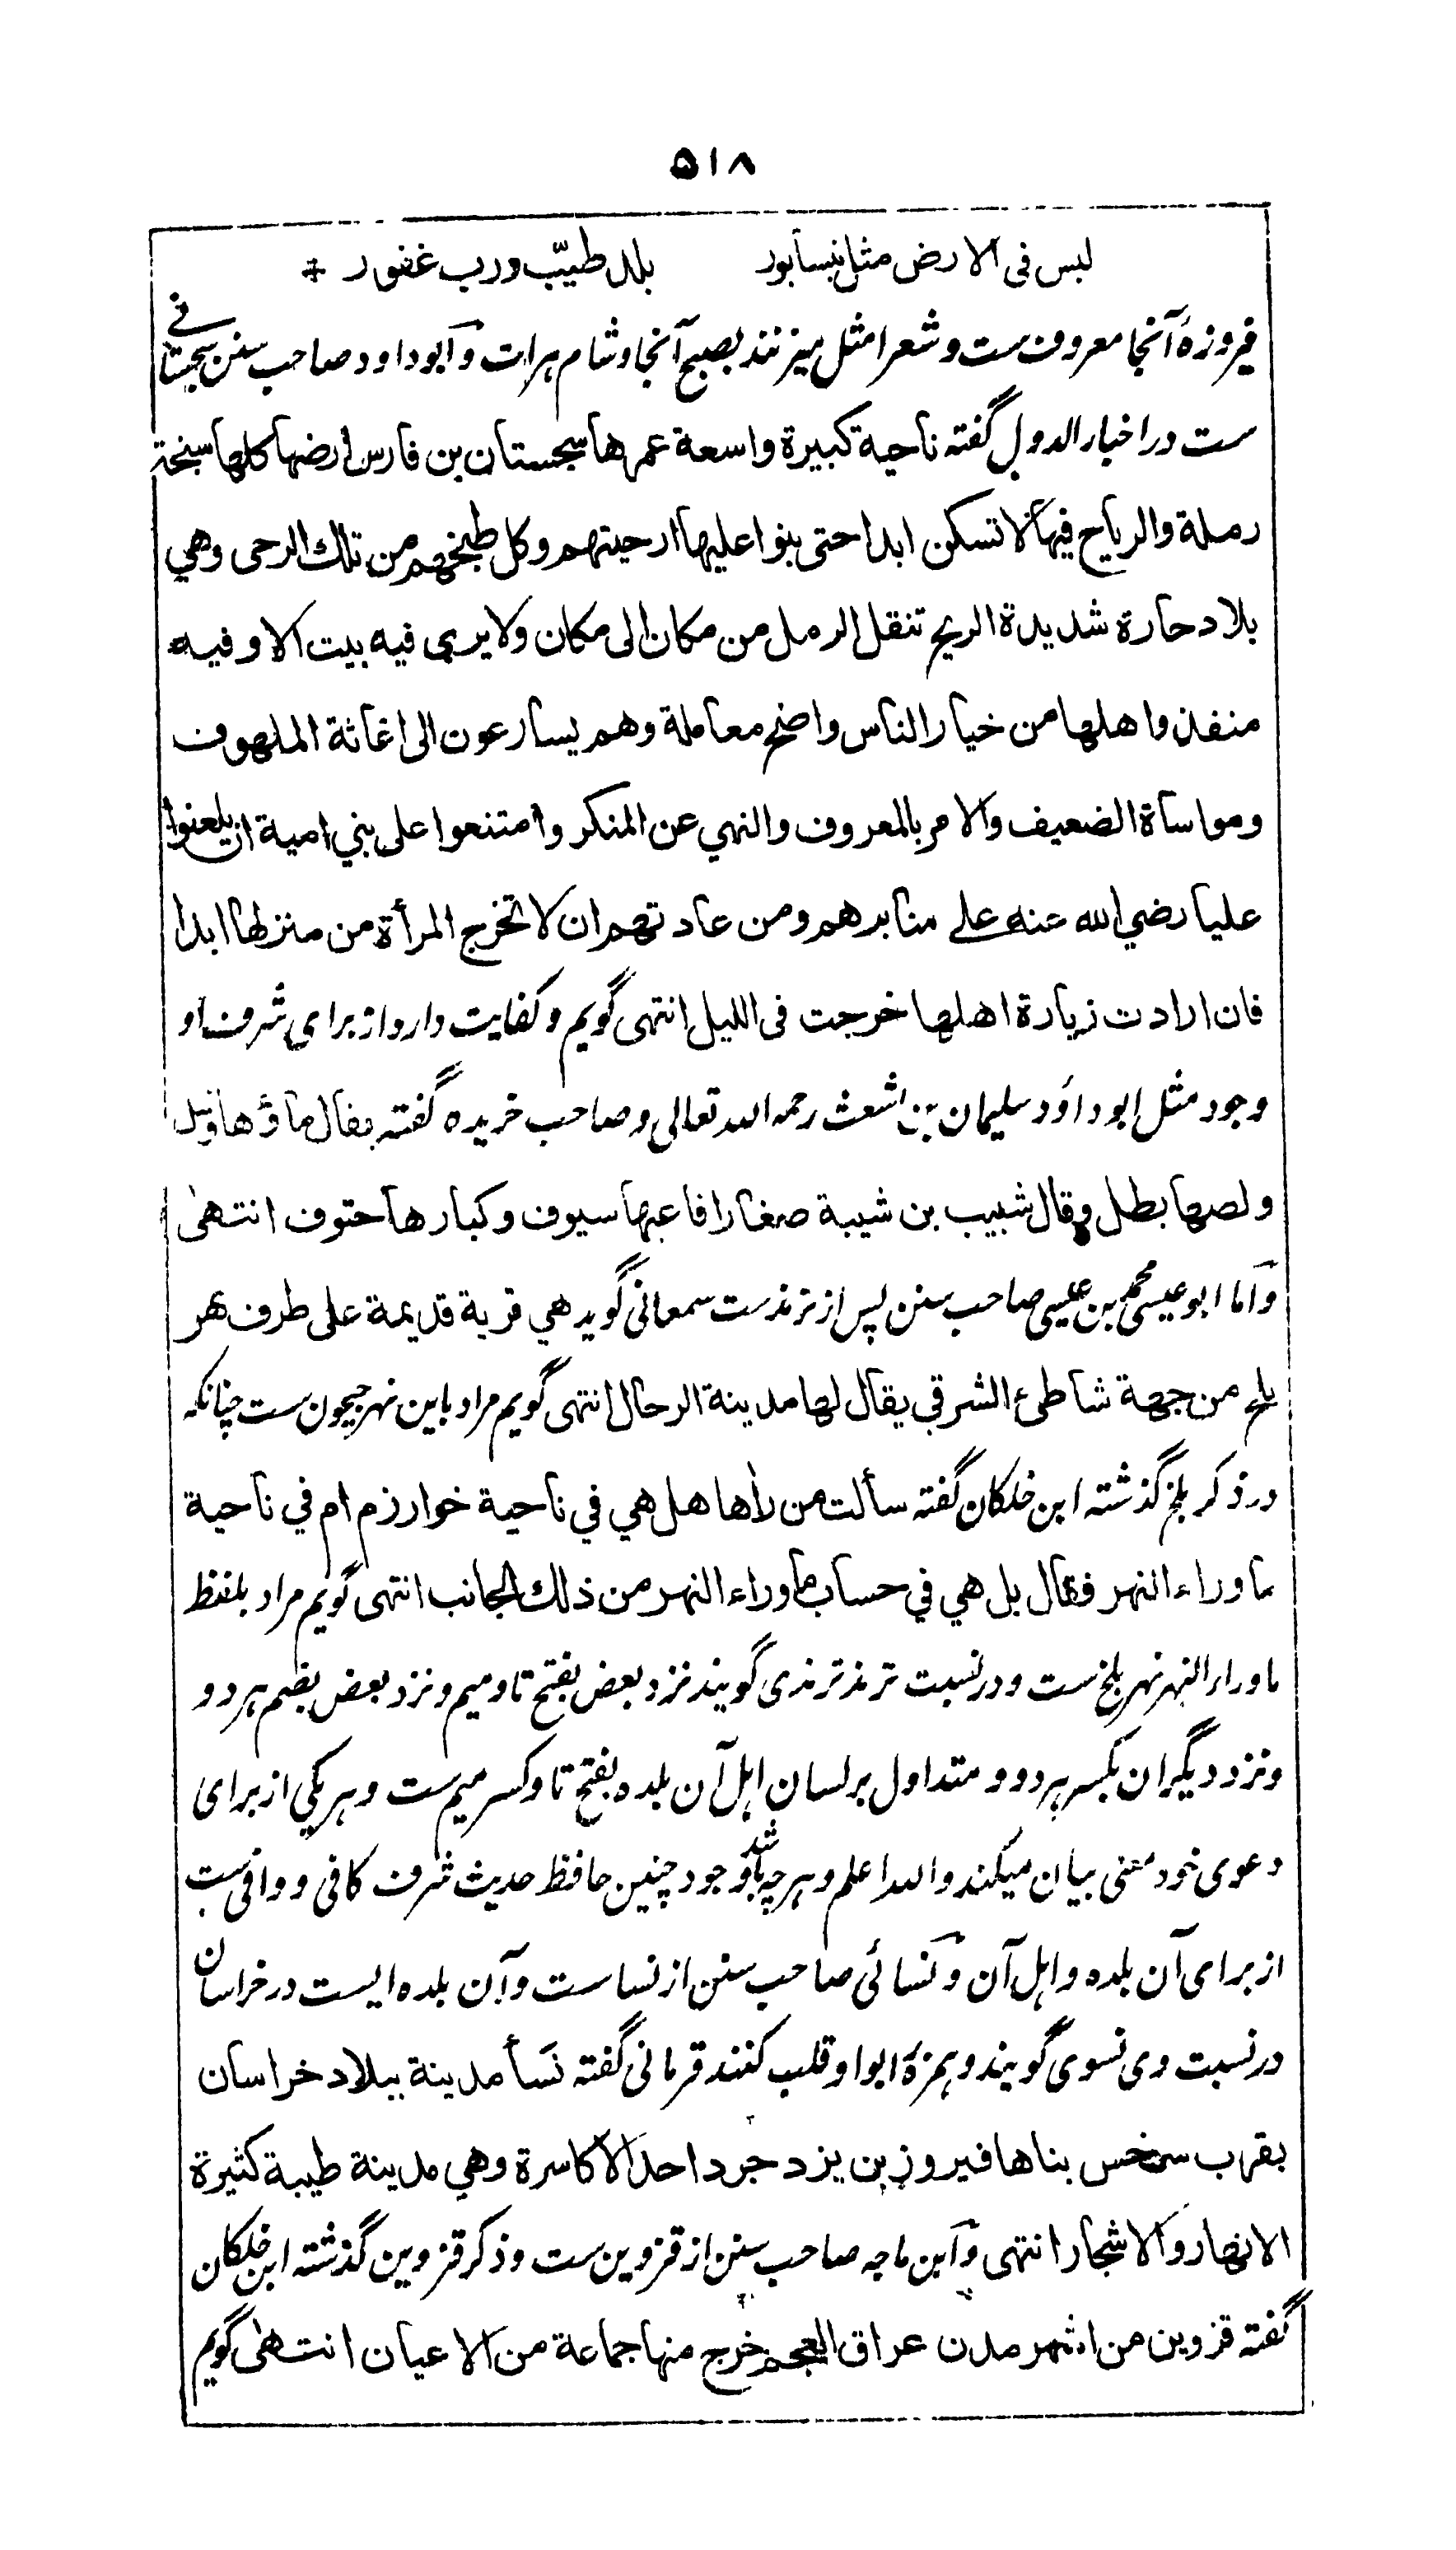 ۵۱۸
لیس فی الارض مثل نیسابور بلد طیّب ورب غفور ‡
فیروزۀ آنجا معروف ست و شعرا مثل میزنند بصبح آنجا و شام هرات و ابوداود صاحب سنن سجستانی
ست در اخبار الدول گفته ناحیة کبیرة واسعة عمرها سجستان بن فارس ارضها کلها سبخة
رملة والریاح فیها لا تسکن ابدا حتی بنوا علیها ارحیتهم وکل طبخهم من تلك الرحی وهي
بلاد حارة شدیدة الریح تنقل الرمل من مکان الی مکان ولا یری فیه بیت الا وفیه
منفذ واهلها من خیار الناس واضح معاملة وهم یسارعون الی اغاثة الملهوف
ومواساة الضعیف والامر بالمعروف والنهي عن المنکر وامتنعوا علی بني امیة ان یلعنوا
علیا رضي الله عنه علے منابرهم ومن عادتهم ان لا تخرج المرأة من منزلها ابدا
فان ارادت زیارة اهلها خرجت فی اللیل انتهی گویم و کفایت دارد از برای شرف او
وجود مثل ابوداود سلیمان بن اشعث رحمه الله تعالی و صاحب خریده گفته یقال ماؤها وشل
ولصها بطل وقال شبیب بن شیبة صغار افاعیها سیوف وکبارها حتوف انتهی
و اما ابو عیسی محمد بن عیسی صاحب سنن پس از ترمذ ست سمعانی گوید هي قریة قدیمة علی طرف نهر
بلخ من جهة شاطئ الشرقي یقال لها مدینة الرجال انتهی گویم مراد باین نهر جیحون ست چنانکه
در ذکر بلخ گذشته ابن خلکان گفته سألت من راٰها هل هي في ناحیة خوارزم ام في ناحیة
ماوراء النهر فقال بل هي في حساب ماوراء النهر من ذلك الجانب انتهی گویم مراد بلفظ
ماوراء النهر نهر بلخ ست و در نسبت ترمذ ترمذی گویند نزد بعض بفتح تا و میم و نزد بعض بضم هر دو
و نزد دیگران بکسر هر دو و متداول بر لسان اهل آن بلده بفتح تا و کسر میم ست و هر یکی از برای
دعوی خود معنی بیان میکند والله اعلم و هرچه باشد وجود چنین حافظ حدیث شرف کافی و وافی ست
از برای آن بلده و اهل آن و نسائی صاحب سنن از نسا ست و آن بلده ایست در خراسان
در نسبت وی نسوی گویند و همزه را بواو قلب کنند قرمانی گفته نسأ مدینة ببلاد خراسان
بقرب سرخس بناها فیروز بن یزدجرد احد الاکاسرة وهي مدینة طیبة کثیرة
الانهار والاشجار انتهی و ابن ماجه صاحب سنن از قزوین ست و ذکر قزوین گذشته ابن خلکان
گفته قزوین من اشهر مدن عراق العجم خرج منها جماعة من الاعیان انتهی گویم